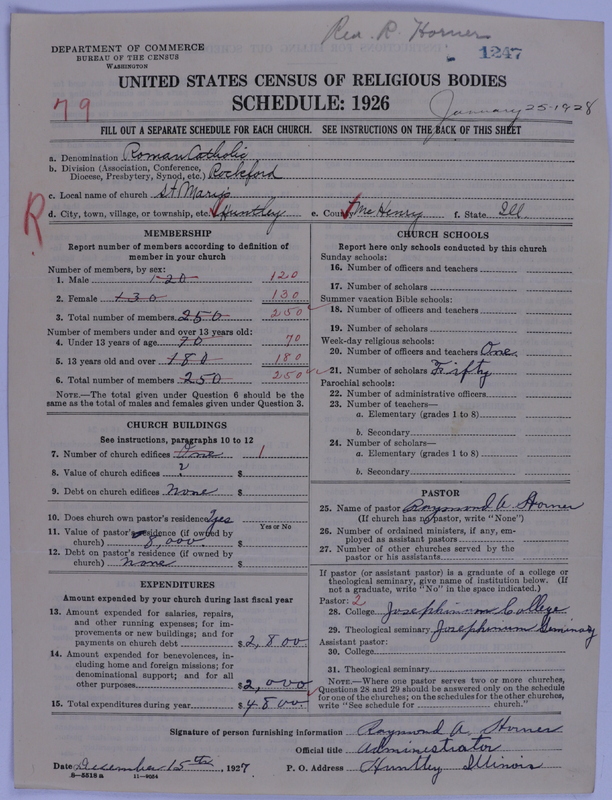 Rev. R. Horner
DEPARTMENT OF COMMERCE
BUREAU OF THE CENSUS
WASHINGTON
1247
UNITED STATES CENSUS OF RELIGIOUS BODIES
79
SCHEDULE: 1926
January 25-1928
FILL OUT A SEPARATE SCHEDULE FOR EACH CHURCH. SEE INSTRUCTIONS ON THE BACK OF THIS SHEET
a. Denomination Roman Catholic
b. Division (Association, Conference, Diocese, Presbytery, Synod, etc.) Rockford
c. Local name of church St Mary's
R
d. City, town, village, or township, etc. Huntley e. County McHenry f. State Ill
MEMBERSHIP
Report number of members according to definition of member in your church
Number of members, by sex:
1. Male 120 120
2. Female 130 130
3. Total number of members 250 250
Number of members under and over 13 years old:
4. Under 13 years of age 70 70
5. 13 years old and over 180 180
6. Total number of members 250 250
NOTE.—The total given under Question 6 should be the same as the total of males and females given under Question 3.
CHURCH BUILDINGS
See instructions, paragraphs 10 to 12
7. Number of church edifices One 1
8. Value of church edifices ? $
9. Debt on church edifices None $
10. Does church own pastor's residence? Yes
Yes or No
11. Value of pastor's residence (if owned by church) 8,000. $
12. Debt on pastor's residence (if owned by church) None $
EXPENDITURES
Amount expended by your church during last fiscal year
13. Amount expended for salaries, repairs, and other running expenses; for improvements or new buildings; and for payments on church debt $2,800
14. Amount expended for benevolences, including home and foreign missions; for denominational support; and for all other purposes $2,000
15. Total expenditures during year $4800.
CHURCH SCHOOLS
Report here only schools conducted by this church
Sunday schools:
16. Number of officers and teachers
17. Number of scholars
Summer vacation Bible schools:
18. Number of officers and teachers
19. Number of scholars
Week-day religious schools:
20. Number of officers and teachers One
21. Number of scholars Fifty
Parochial schools:
22. Number of administrative officers
23. Number of teachers—
a. Elementary (grades 1 to 8)
b. Secondary
24. Number of scholars—
a. Elementary (grades 1 to 8)
b. Secondary
PASTOR
25. Name of pastor Raymond A. Horner
(If church has no pastor, write "None")
26. Number of ordained ministers, if any, employed as assistant pastors
27. Number of other churches served by the pastor or his assistants
If pastor (or assistant pastor) is a graduate of a college or theological seminary, give name of institution below. (If not a graduate, write "No" in the space indicated.)
Pastor: 2
28. College Josephinum College
29. Theological seminary Josephinum Seminary
Assistant pastor:
30. College
31. Theological seminary
NOTE.—Where one pastor serves two or more churches, Questions 28 and 29 should be answered only on the schedule for one of the churches; on the schedules for the other churches, write "See schedule for church."
Signature of person furnishing information Raymond A. Horner
Official title Administrator
Date December 15th, 1927 P. O. Address Huntley Illinois
8-5518 a 11-9054